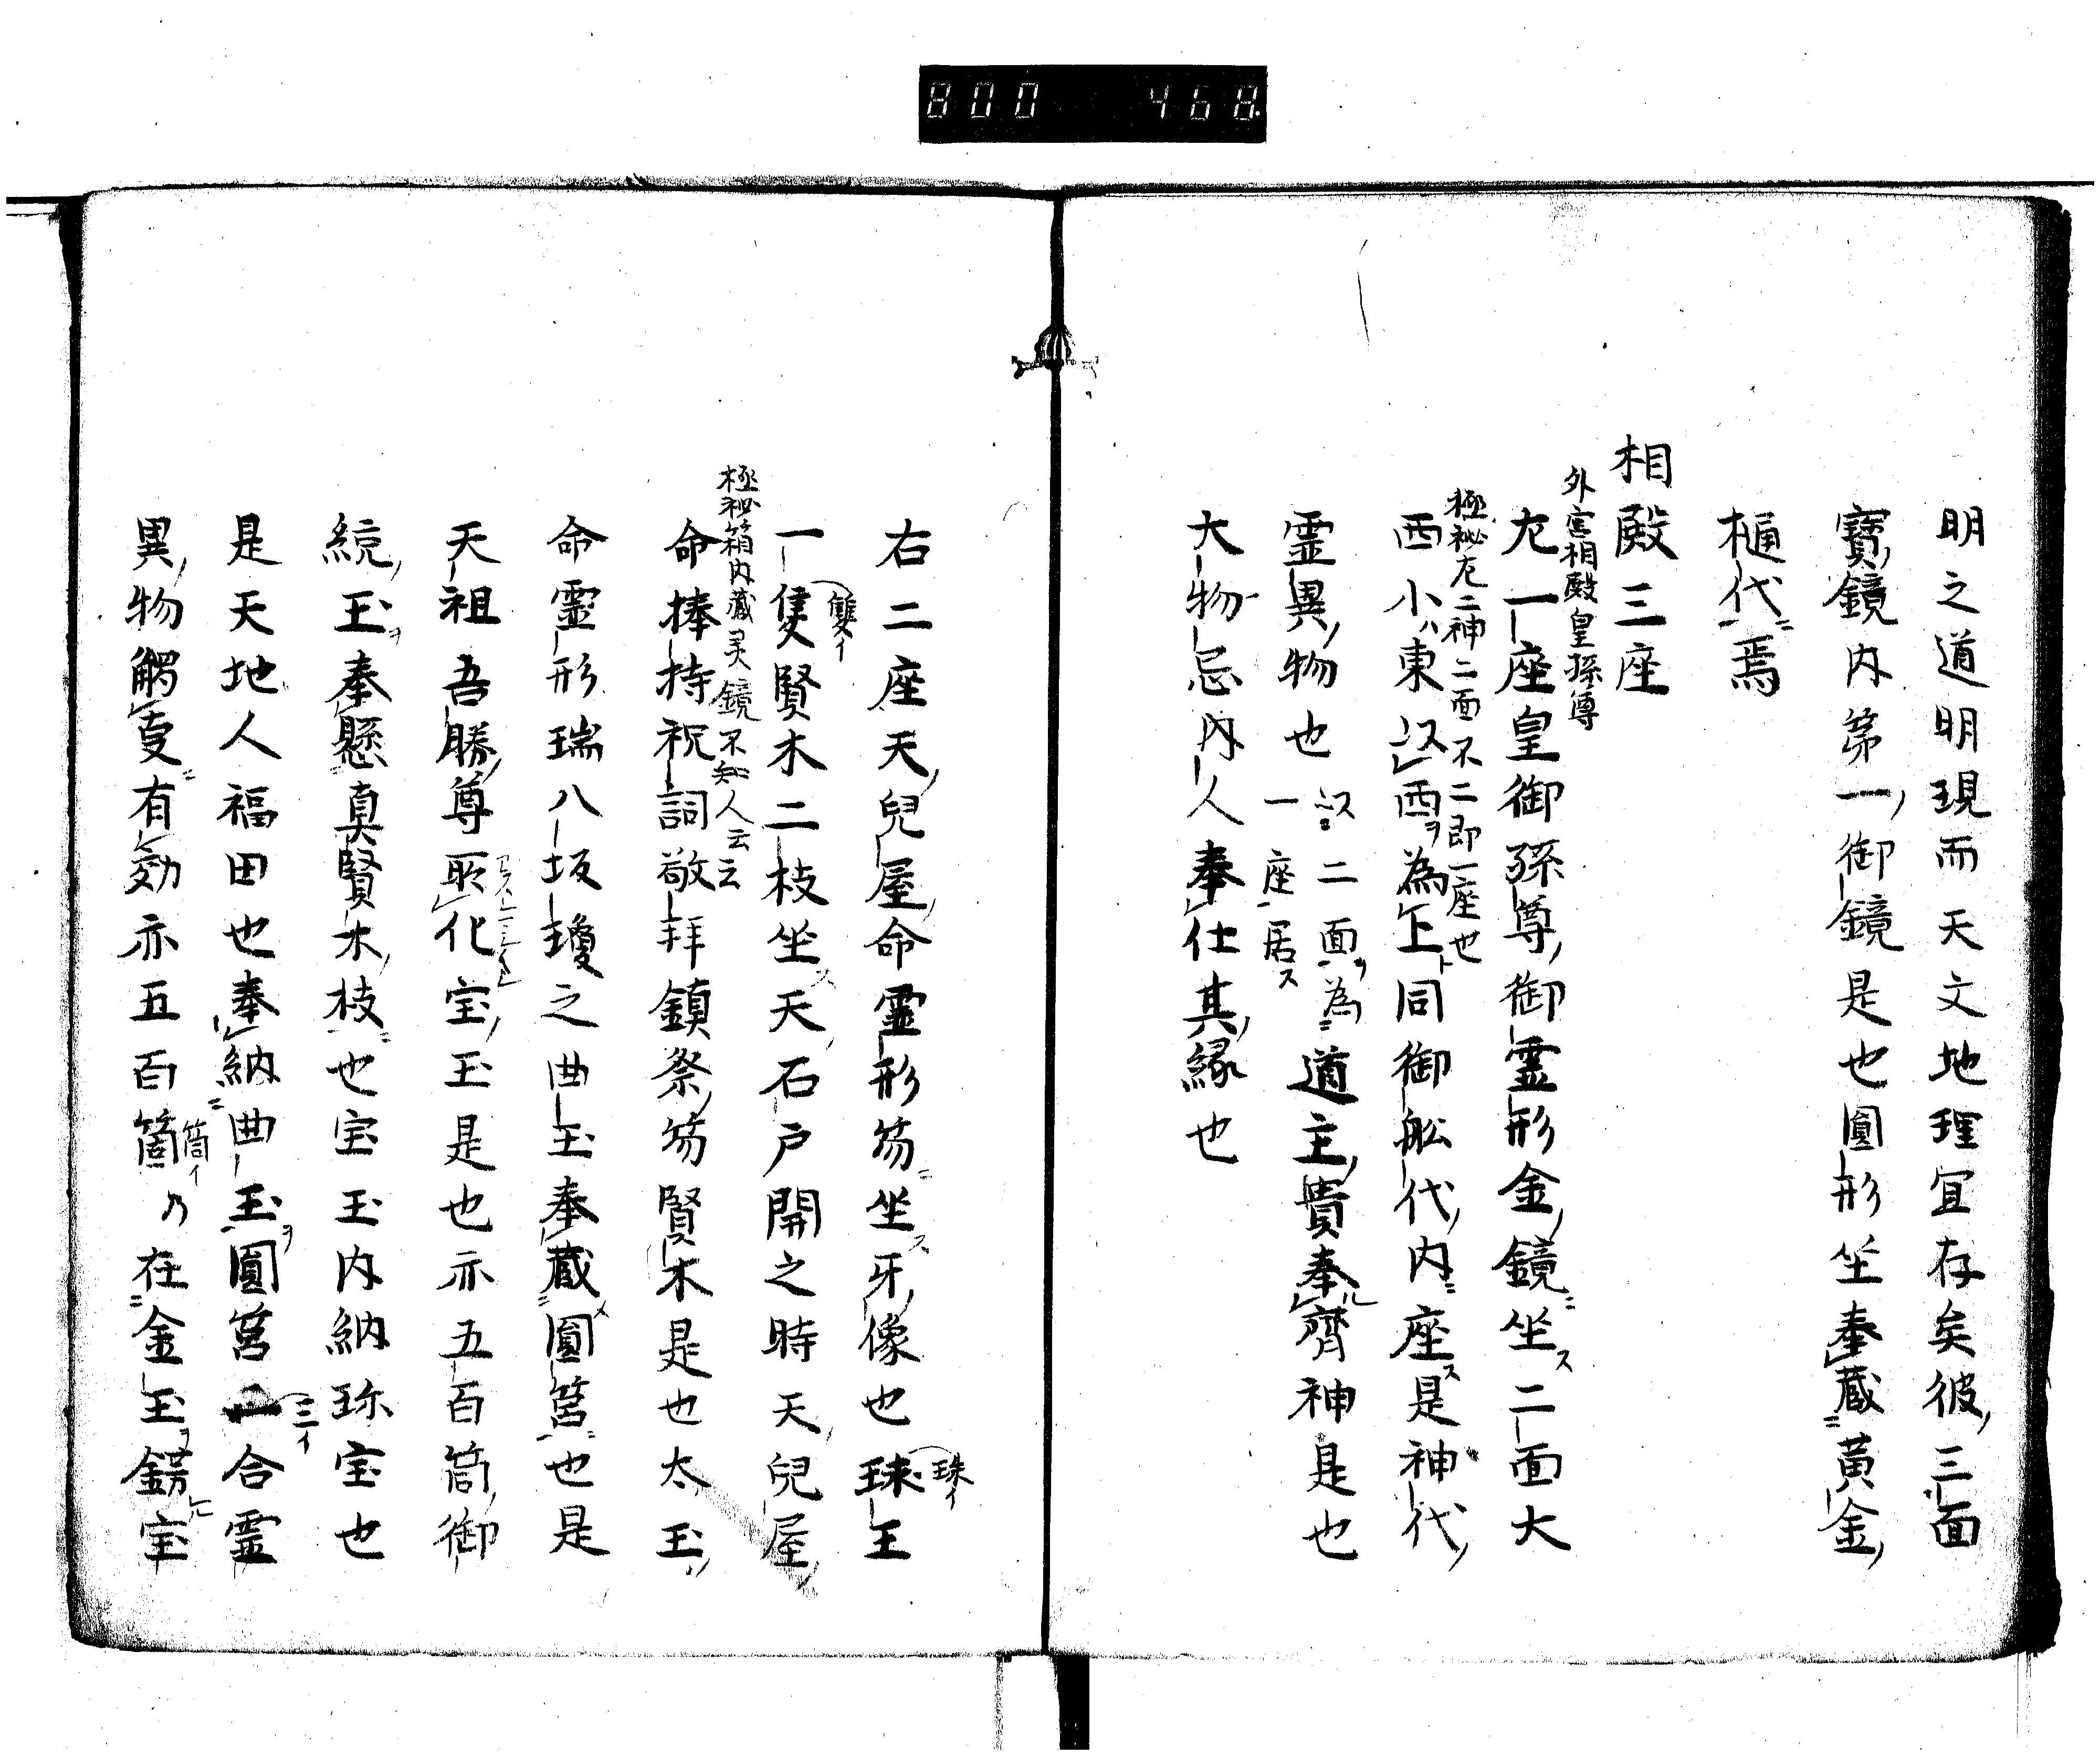 800 468
明之道明現而天文地理宜存矣彼三面
寶鏡内第一御鏡是也圓形坐奉蔵黄金
樋代焉
相殿三座
外宮相殿皇孫尊
左一座皇御孫尊御霊形金鏡坐二面大
極祕左二神二面不二即一座也
西小東以西為上同御舩代内座是神代
霊異物也以二面為一座居道主貴奉齊神是也
大物忌内人奉仕其縁也
右二座天兒屋命霊形笏坐牙像也珠王
珠イ
雙イ
一隻賢木二枝坐天石戸開之時天兒屋
極祕箱内蔵灵鏡不知人云云
命捧持祝詞敬拜鎮祭笏賢木是也太玉
命霊形瑞八坂瓊之曲玉奉蔵圓筥也是
天祖吾勝尊化宝玉是也亦五百箇御
統玉奉懸真賢木枝也宝玉内納珎宝也
是天地人福田也奉納曲玉圓筥二合霊
三イ
異物觸事有効亦五百箇乃在金玉錺宝
箇イ